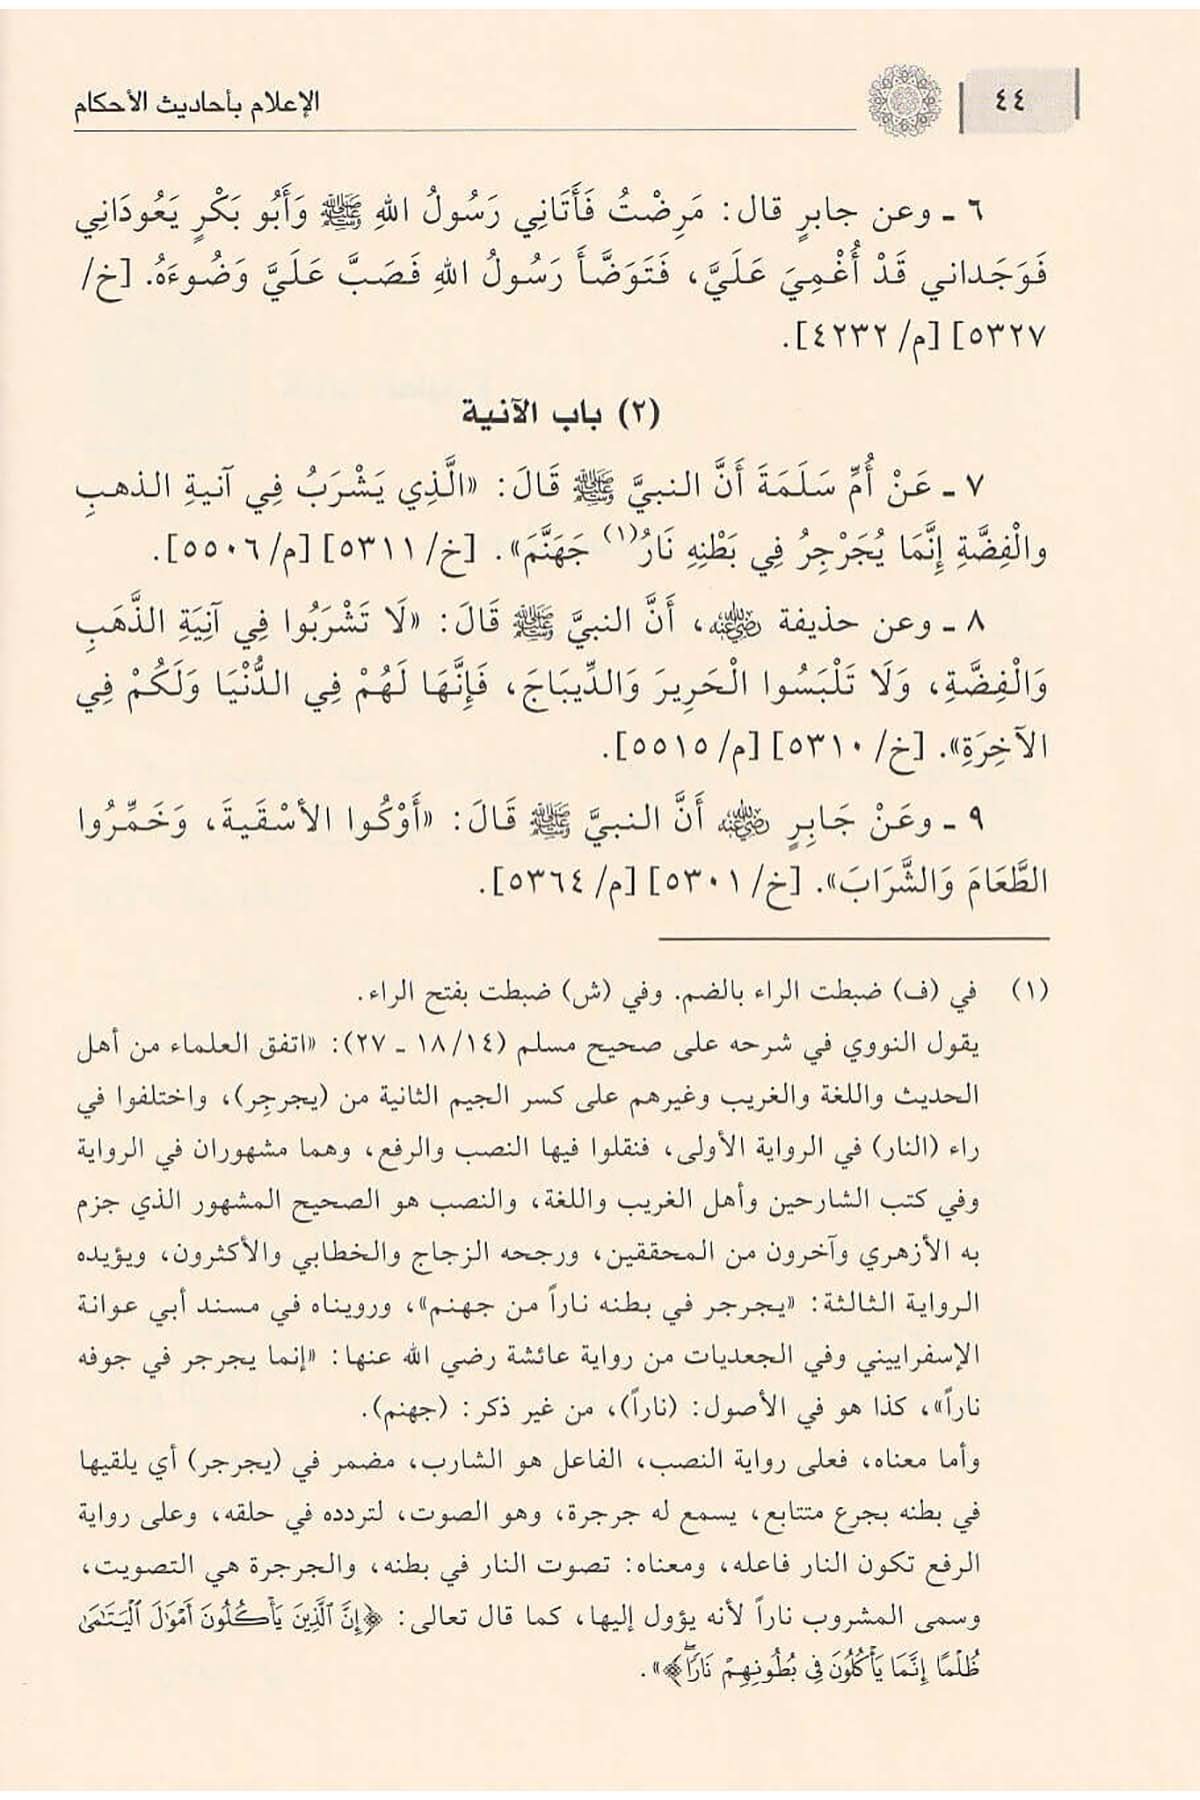 ٤٤
الإعلام بأحاديث الأحكام
٦ ـ وعن جابرٍ قال: مَرِضْتُ فَأَتَانِي رَسُولُ اللهِ ﷺ وَأَبُو بَكْرٍ يَعُودَانِي
فَوَجَداني قَدْ أُغْمِيَ عَلَيَّ، فَتَوَضَّأَ رَسُولُ اللهِ فَصَبَّ عَلَيَّ وَضُوءَهُ. [خ/
٥٣٢٧] [م/ ٤٢٣٢].
(٢) باب الآنية
٧ ـ عَنْ أُمِّ سَلَمَةَ أَنَّ النبيَّ ﷺ قَالَ: «الَّذِي يَشْرَبُ فِي آنيةِ الذهبِ
والْفِضَّةِ إِنَّمَا يُجَرْجِرُ فِي بَطْنِهِ نَارُ(١) جَهَنَّمَ». [خ/ ٥٣١١] [م/ ٥٥٠٦].
٨ ـ وعن حذيفة رضي الله عنه، أَنَّ النبيَّ ﷺ قَالَ: «لَا تَشْرَبُوا فِي آنِيَةِ الذَّهَبِ
وَالْفِضَّةِ، وَلَا تَلْبَسُوا الْحَرِيرَ وَالدِّيبَاجَ، فَإِنَّهَا لَهُمْ فِي الدُّنْيَا وَلَكُمْ فِي
الآخِرَةِ». [خ/ ٥٣١٠] [م/ ٥٥١٥].
٩ ـ وعَنْ جَابِرٍ رضي الله عنه أَنَّ النبيَّ ﷺ قَالَ: «أَوْكُوا الأسْقَيةَ، وَخَمِّرُوا
الطَّعَامَ وَالشَّرَابَ». [خ/ ٥٣٠١] [م/ ٥٣٦٤].
(١) في (ف) ضبطت الراء بالضم. وفي (ش) ضبطت بفتح الراء.
يقول النووي في شرحه على صحيح مسلم (١٨/١٤ ـ ٢٧): «اتفق العلماء من أهل
الحديث واللغة والغريب وغيرهم على كسر الجيم الثانية من (يجرجِر)، واختلفوا في
راء (النار) في الرواية الأولى، فنقلوا فيها النصب والرفع، وهما مشهوران في الرواية
وفي كتب الشارحين وأهل الغريب واللغة، والنصب هو الصحيح المشهور الذي جزم
به الأزهري وآخرون من المحققين، ورجحه الزجاج والخطابي والأكثرون، ويؤيده
الرواية الثالثة: «يجرجر في بطنه ناراً من جهنم»، ورويناه في مسند أبي عوانة
الإسفراييني وفي الجعديات من رواية عائشة رضي الله عنها: «إنما يجرجر في جوفه
ناراً»، كذا هو في الأصول: (ناراً)، من غير ذكر: (جهنم).
وأما معناه، فعلى رواية النصب، الفاعل هو الشارب، مضمر في (يجرجر) أي يلقيها
في بطنه بجرع متتابع، يسمع له جرجرة، وهو الصوت، لتردده في حلقه، وعلى رواية
الرفع تكون النار فاعله، ومعناه: تصوت النار في بطنه، والجرجرة هي التصويت،
وسمى المشروب ناراً لأنه يؤول إليها، كما قال تعالى: ﴿إِنَّ ٱلَّذِينَ يَأۡكُلُونَ أَمۡوَٰلَ ٱلۡيَتَٰمَىٰ
ظُلۡمًا إِنَّمَا يَأۡكُلُونَ فِي بُطُونِهِمۡ نَارٗاۖ﴾».